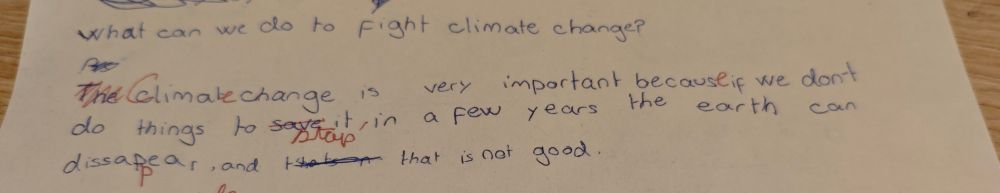 What can we do to fight climate change?
The Climate change is very important because if we don't
do things to save it, in a few years the earth can
stop
dissapear, and that is not good.
p